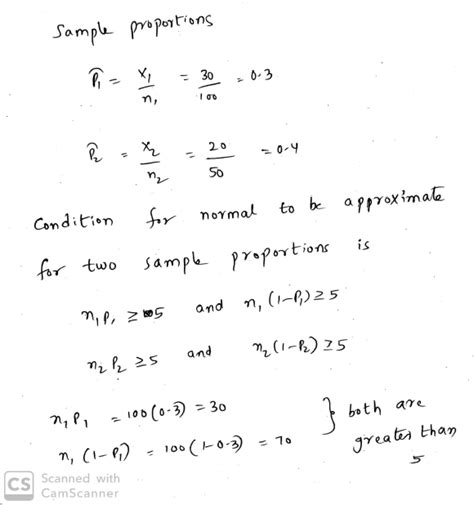 Sample proportions
p̂₁ = x₁/n₁ = 30/100 = 0.3
p̂₂ = x₂/n₂ = 20/50 = 0.4
Condition for normal to be approximate
for two sample proportions is
n₁p₁ ≥ 5 and n₁(1-p₁) ≥ 5
n₂p₂ ≥ 5 and n₂(1-p₂) ≥ 5
n₁p₁ = 100(0.3) = 30 } both are
n₁(1-p₁) = 100(1-0.3) = 70 greater than
5
CS Scanned with
CamScanner